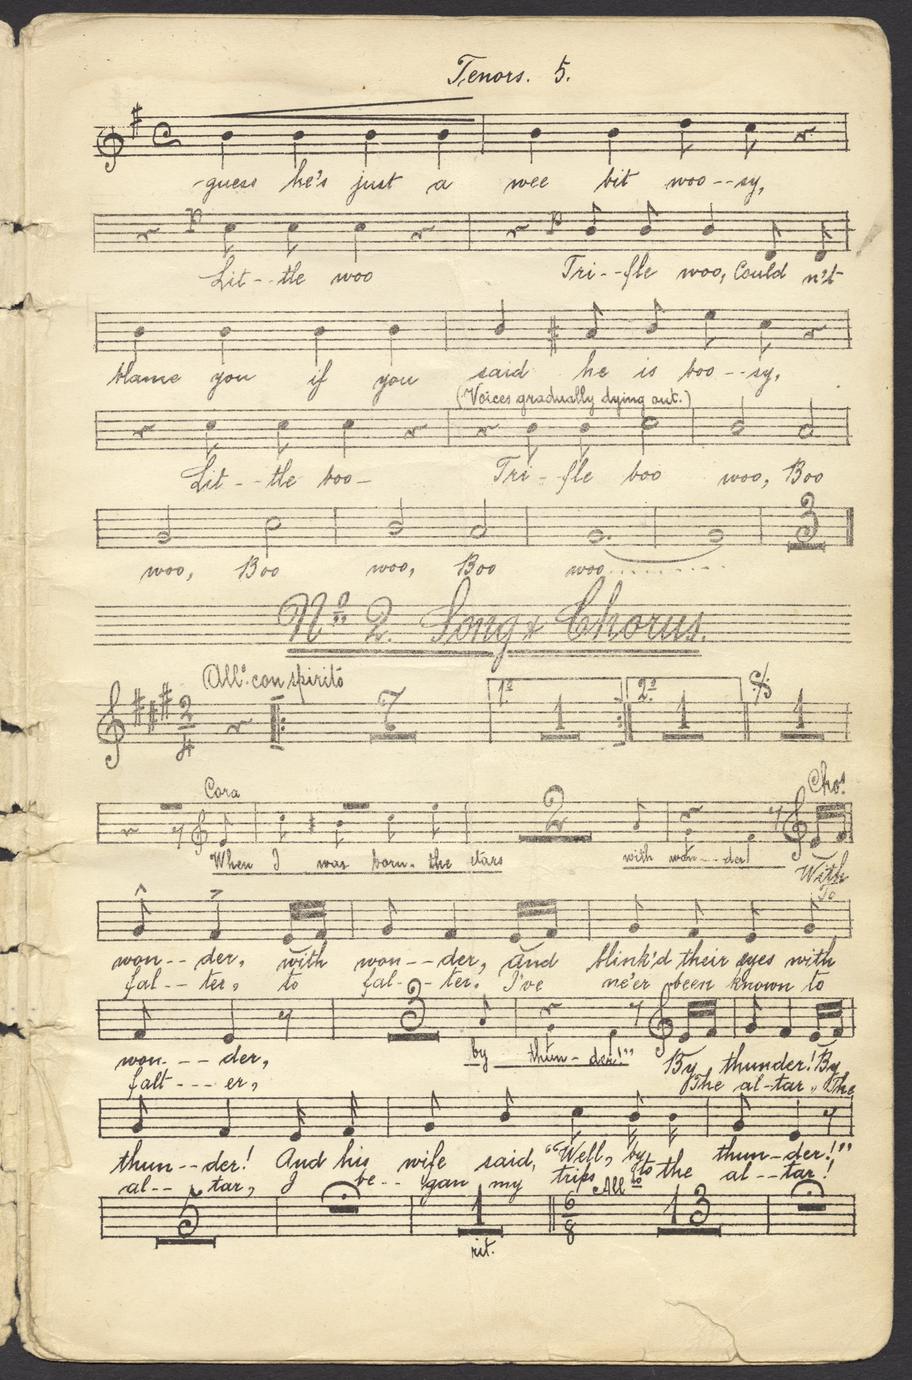 Tenors. 5.
guess he's just a wee bit woo--sy,
p p
Lit--tle woo Tri--fle woo, Could n't
blame you if you said he is boo--sy,
(Voices gradually dying out.)
Lit--tle boo- Tri-fle boo woo, Boo
3
woo, Boo woo, Boo woo..........
No. 2. Song & Chorus.
All.o con spirito
2/4 7 1a 1 2a 1 1
Cora Cho.s
2
When I was born- the stars with won--der! With
To
won--der, with won--der, and blink'd their eyes with
fal--ter, to fal--ter. I've ne'er been known to
3
won---der, by thun-der!" By thunder! By
falt---er, The al-tar, The
thun--der! And his wife said, "Well, by thun-der!"
al--tar, I be--gan my trips to the al--tar!
All.to
5 1 6/8 13
rit.